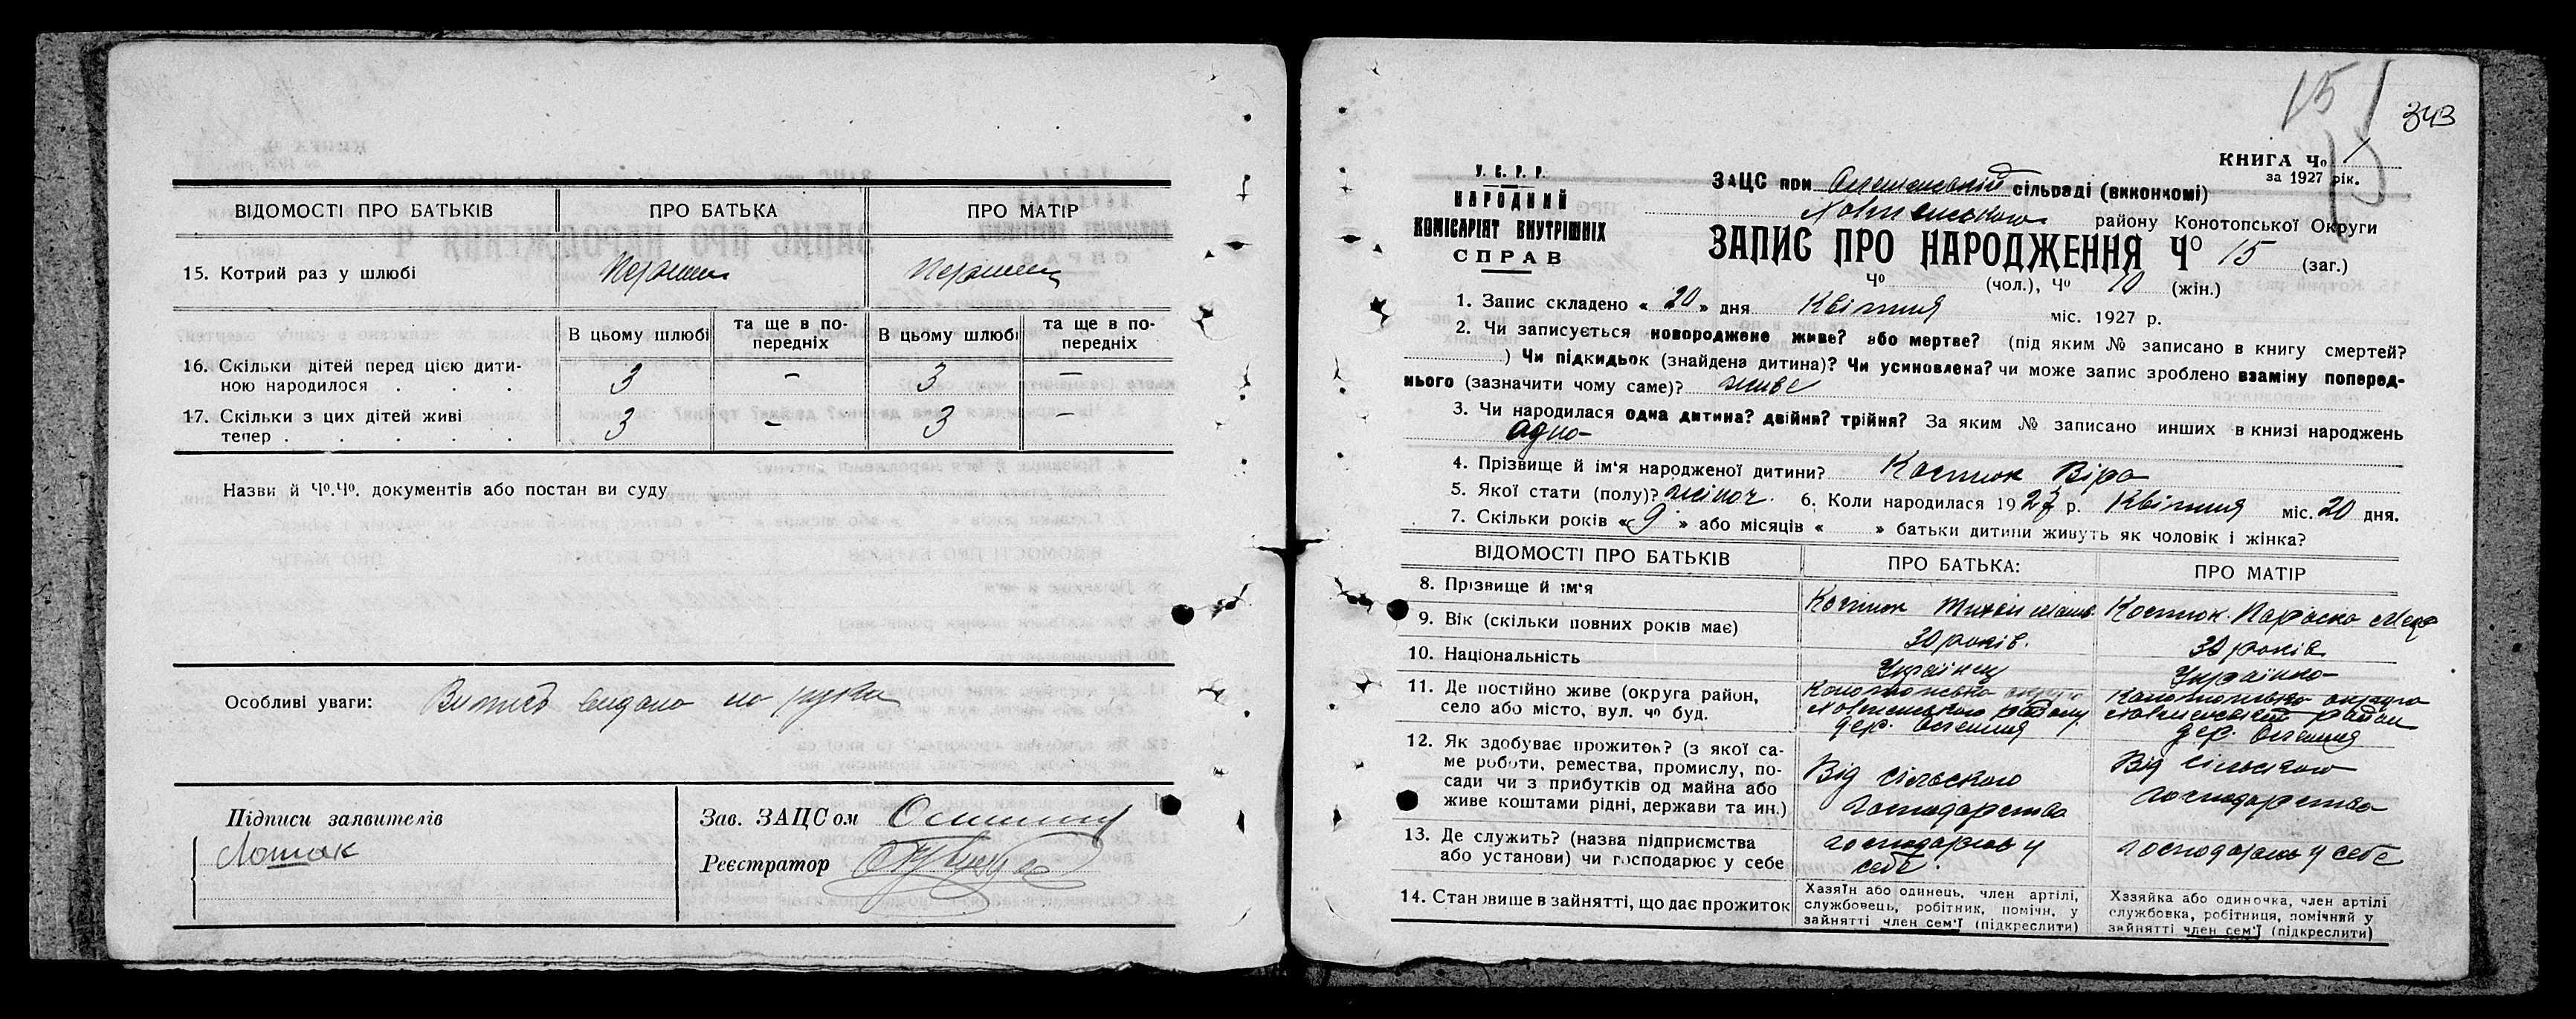 ВІДОМОСТІ ПРО БАТЬКІВ ПРО БАТЬКА ПРО МАТІР
15. Котрий раз у шлюбі
В цьому шлюбі та ще в по-передніх В цьому шлюбі та ще в по-передніх
16. Скільки дітей перед цією дити-
ною народилося . . . 3 – 3 –
17. Скільки з цих дітей живі
тепер . . . . . 3 – 3 –
Назви й Чо.Чо. документів або постан ви суду
Особливі уваги: видано на руки
Підписи заявителів
Зав. ЗАЦСом
Реєстратор
15
343
КНИГА Чо 1
за 1927 рік.
У. С. Р. Р.
НАРОДНИЙ
КОМІСАРІЯТ ВНУТРІШНІХ
СПРАВ
ЗАЦС при сільраді (виконкомі)
району Конотопської Округи
ЗАПИС ПРО НАРОДЖЕННЯ Чо 15 (заг.)
Чо (чол.), Чо 10 (жін.)
1. Запис складено « 20 » дня Квітня міс. 1927 р.
2. Чи записується новороджене живе? або мертве? (під яким № записано в книгу смертей?
) Чи підкидьок (знайдена дитина)? Чи усиновлена? чи може запис зроблено взаміну поперед-
нього (зазначити чому саме)? живе
3. Чи народилася одна дитина? двійня? трійня? За яким № записано инших в книзі народжень
одно
4. Прізвище й ім'я народженої дитини? Костюк Віра
5. Якої стати (полу)? жіноч. 6. Коли народилася 1927 р. Квітня міс. 20 дня.
7. Скільки років « 9 » або місяців « » батьки дитини живуть як чоловік і жінка?
ВІДОМОСТІ ПРО БАТЬКІВ ПРО БАТЬКА: ПРО МАТІР
8. Прізвище й ім'я Костюк Костюк Параска
9. Вік (скільки повних років має) 30 років. 30 років
10. Національність Українец Українка
11. Де постійно живе (округа район,
село або місто, вул. чо буд. Конотопська округа району дер. Конотопська округа район дер.
12. Як здобуває прожиток? (з якої са-
ме роботи, ремества, промислу, по-
сади чи з прибутків од майна або
живе коштами рідні, держави та ин.) Від сільського господарства Від сільського господарства
13. Де служить? (назва підприємства
або установи) чи господарює у себе господарює у себе. господарює у себе
14. Становище в зайнятті, що дає прожиток
Хазяїн або одинець, член артілі,
службовець, робітник, помічн. у
зайнятті член сем'ї (підкреслити)
Хазяйка або одиночка, член артілі
службовка, робітниця, помічний у
зайнятті член сем'ї (підкреслити)